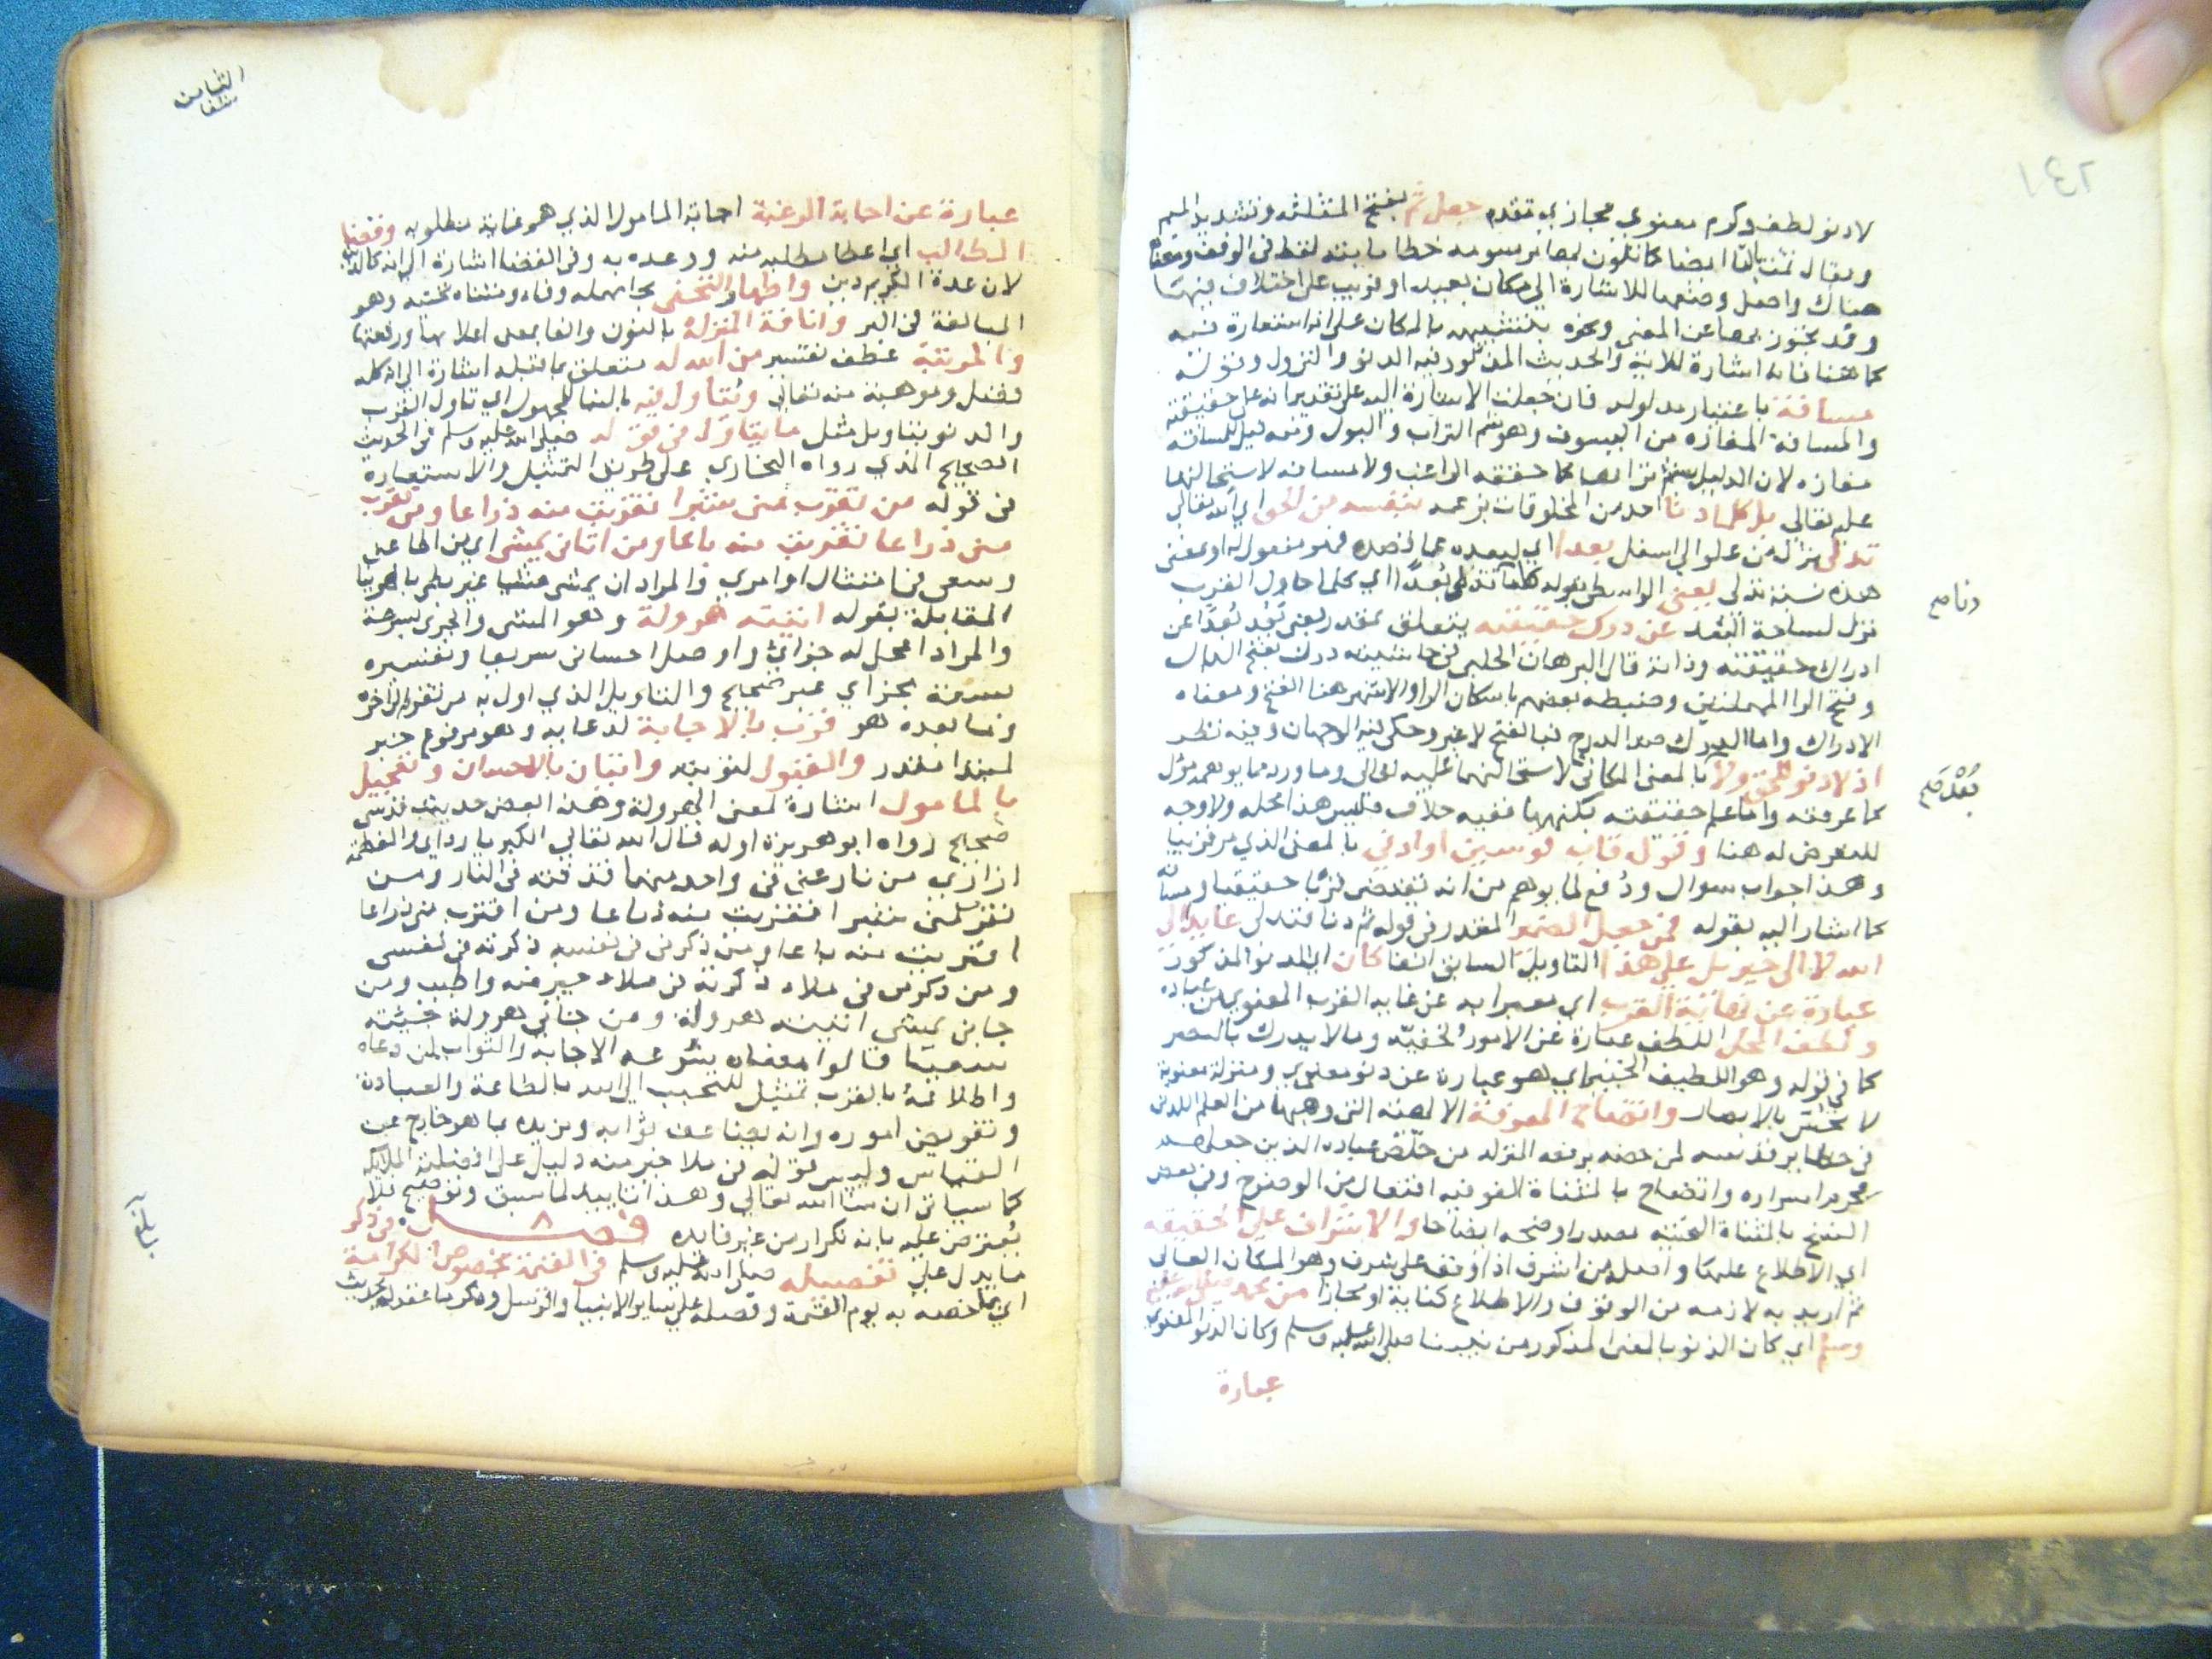 لا دنو لطف وكرم معنوي مجازي تقدم جعل ثم بفتح المثلثة وتشديد الميم
ويقال ثمت بالتا ايضا كما تكون بها مرسومه خطا ثابته لفظا في الوقف ومعناها
هناك واصل وضعها للاشارة الي مكان بعيد او قريب على اختلاف فيه
وقد يتجوز بها عن المعنى ونحوه بتشبيهه بالمكان على انه استعارة
كما هنا فانه اشارة للاية والحديث المذكور فيه الدنو والنزول وقوله
مسافة باعتبار مدلوله فان جعلت الاشارة اليه على تقدير انه على حقيقته
والمسافة المفازه من السوف وهو شم التراب والبول ومنه قيل للمسافه
مفازه لان الدليل يشم ترابها كما حققه الراغب ولا مسافه لاستحالتها
عليه تعالي بل كلما دنا احد من المخلوقات بزعمه بنفسه من الحق اي الله تعالي
تدلى نزل من علو الي اسفل بعدا اي لبعده عما قصده فهو مفعول له او بمعنى
هذه نسبة تدلى يعني الواسطي بقوله كلما تدلى بعدا اي كلما حاول القرب
نزل لساحة البعد عن درك حقيقته يتعلق بمقدر يعني بعد بعدا عن
ادراك حقيقته وذاته قال البرهان الحلبي في حاشيته درك بفتح الدال
وفتح الرا المهملتين وضبطه بعضهم باسكان الرا والاشهر هنا الفتح ومعناه
الادراك واما الدرك ضد الدرج فبالفتح لا غير وحكي فيه الوجهان وفيه نظر
اذ لا دنو للحق ولا بعد بالمعنى المكاني لاستحالتهما عليه تعالى وما ورد مما يوهمه مؤل
كما عرفته واما علم حقيقته بكنهها ففيه خلاف فليس هذا محله ولا وجه
للتعرض له هنا وقوله قاب قوسين او ادنى بالمعنى الذي مر قريبا
وهذا جواب سوال ودفع لما يوهم من انه يقتضي قربا حقيقيا ومسافه
كما اشار اليه بقوله فمن جعل الضمير المقدر في قوله ثم دنا فتدلى عايدا الى
الله لا الى جبريل على هذا التاويل السابق انفا كان اي الدنو المذكور
عبارة عن نهاية القرب اي معبرا به عن غاية القرب المعنوي من عباده
ولطف المحل اللطف عبارة عن الامور الخفيه وما لا يدرك بالبصر
كما في قوله وهو اللطيف الخبير اي هو عبارة عن دنو معنوي ومنزلة معنوية
لا تحس بالابصار واتضاح المعرفة الالهية التي وهبها من العلم اللدني
في حظاير قدسه لمن خصه برفعه المنزله من خلص عباده الذين جعلهم
محرم اسراره واتضاح بالمثناة الفوقيه افتعال من الوضوح وفي بعض
النسخ بالمثناة التحتيه مصدر اوضحه ايضاحا والاشراف على الحقيقه
اي الاطلاع عليها واصله من اشرف اذا وقف على شرف وهو المكان العالي
ثم اريد به لازمه من الوقوف والاطلاع كناية او مجازا من محمد صلى الله عليه
وسلم اي كان الدنو بالمعنى المذكور من نبينا صلى الله عليه وسلم وكان الدنو المعنوي
عبارة
دنا صح
بعد صح
الثامن
عبارة عن اجابة الرغبة اجابة المامول الذي هو غاية مطلوبه وقضا
المطالب اي اعطا مطلبه منه ووعده به وفي القضا اشارة الى انه كالدين
لان عدة الكريم دين واظهار التحفي بحا مهمله وفاء ومثناه تحتيه وهو
المبالغة في البر وانافة المنزلة بالنون والفا بمعنى اعلاها ورفعتها
والمرتبة عطف تفسير من الله له متعلق بما قبله اشارة الى انه كله
فضل وموهبة منه تعالى ويتأول فيه بالبنا للمجهول اي تاول القرب
والدنو بتاويل مثل ما يتأول في قوله صلى الله عليه وسلم في الحديث
الصحيح الذي رواه البخاري على طريق التمثيل والاستعارة
في قوله من تقرب مني شبرا تقربت منه ذراعا ومن تقرب
مني ذراعا تقربت منه باعا ومن اتاني يمشي اي في طاعتي
وسعى في امتثال اوامري والمراد ان يمشي مشيا غير
المقابلة بقوله اتيته هرولة وهو المشي والجري بسرعة
والمراد اعجل له جزائي واوصل احساني سريعا وتفسيره
بسرعة بجزاي غير صحيح والتاويل الذي اول به من تقرب الى اخره
وما بعده هو قرب بالاجابة لدعايه وهو مرفوع خبر
لمبتدا مقدر والقبول لتوبته واتيان بالاحسان وتعجيل
بالمامول اشارة لمعنى الهرولة وهذا البعض حديث قدسي
صحيح رواه ابو هريرة اوله قال الله تعالي الكبرياء رداي والعظمة
ازاري من نازعني في واحد منهما قذفته في النار ومن
تقرب مني شبرا تقربت منه ذراعا ومن اقترب مني ذراعا
اقتربت منه باعا ومن ذكرني في نفسه ذكرته في نفسي
ومن ذكرني في ملاء ذكرته في ملاء خير منه واطيب ومن
جاني يمشي اتيته هرولة ومن جاني هرولة جيته
سعيا قالوا معناه سرعه الاجابة والثواب لمن دعاه
واطلاقه بالقرب تمثيل للتحبب الى الله بالطاعة والعبادة
وتفويض اموره وانه يضاعف ثوابه ويزيده بما هو خارج عن
القياس وليس قوله في ملا خير منه دليل على افضلية الملايكه
كما سياتي ان شا الله تعالي وهذا تاييد لما سبق وتوضيح فلا
يعترض عليه بانه تكرار من غير فايده فصل ٨ في ذكر
ما يدل على تفضيله صلى الله عليه وسلم في القيمة بخصوص الكرامة
اي بما خصه به يوم القيمة وفضله على ساير الانبيا والرسل
بلغ